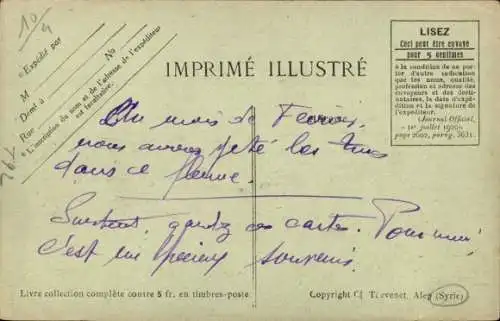 10
4
Expédié par
M
Dmt à
Rue
No
* L'inscription du nom et de l'adresse de l'expéditeur
est facultative.
IMPRIMÉ ILLUSTRÉ
LISEZ
Ceci peut être envoyé
pour 5 centimes
à la condition de ne por-
ter d'autre indication
que les nom, qualité,
profession et adresse des
envoyeurs et des desti-
nataires, la date d'expédi-
tion et la signature de
l'expéditeur.
(Journal Officiel,
1er juillet 1920,
page 2602, parag. 3631.
Au mois de Fevrier,
nous avons jeté les Turcs
dans ce fleuve.
Surtout, gardez ces cartes. Pour moi,
c'est un précieux souvenir.
Livre collection complète contre 5 fr. en timbres-poste
Copyright Cl Thévenet, Alep (Syrie)